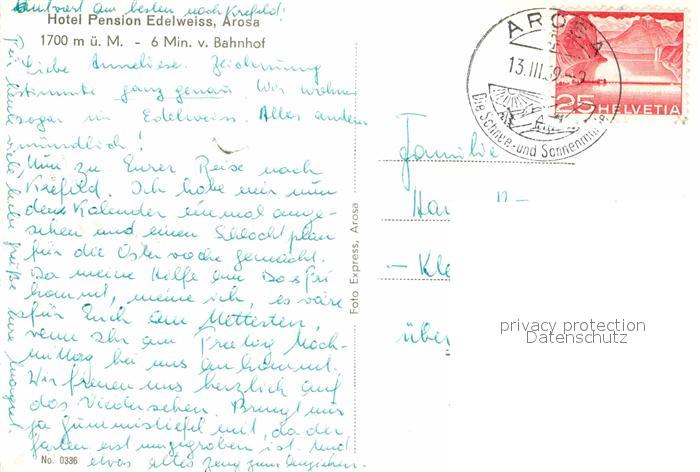 Antwort am besten nach Krefeld!
Hotel Pension Edelweiss, Arosa
1700 m ü. M. - 6 Min. v. Bahnhof
Liebe Anneliese. Zeichnung
stimmte ganz genau. Wir wohnen
sogar im Edelweiss. Alles andere
mündlich!
Nun zu Eurer Reise nach
Krefeld. Ich habe mir nun
den Kalender einmal ange-
sehen und einen Schlachtplan
für die Osterwoche gemacht.
Da meine Hilfe am
kommt, meine ich, es wäre
für Euch am nettesten,
wenn Ihr am Freitag Nach-
mittag bei uns ankommt.
Wir freuen uns herzlich auf
das Wiedersehen. Bringt mir
ja Gummistiefel mit, da der
Garten erst umgegraben ist. Und
etwas altes Zeug zum Anziehen.
Für heute viele liebe Grüße Eure Margret
No. 0336
Foto Express, Arosa
AROSA
13.III.59-9
Die Schnee- und Sonnen
25 HELVETIA
Familie
Ha
- Kle
über
privacy protection
Datenschutz